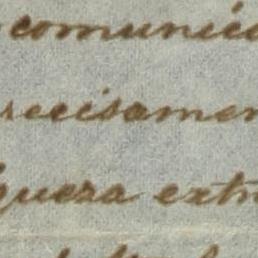 comunica
recisamen
queza extr